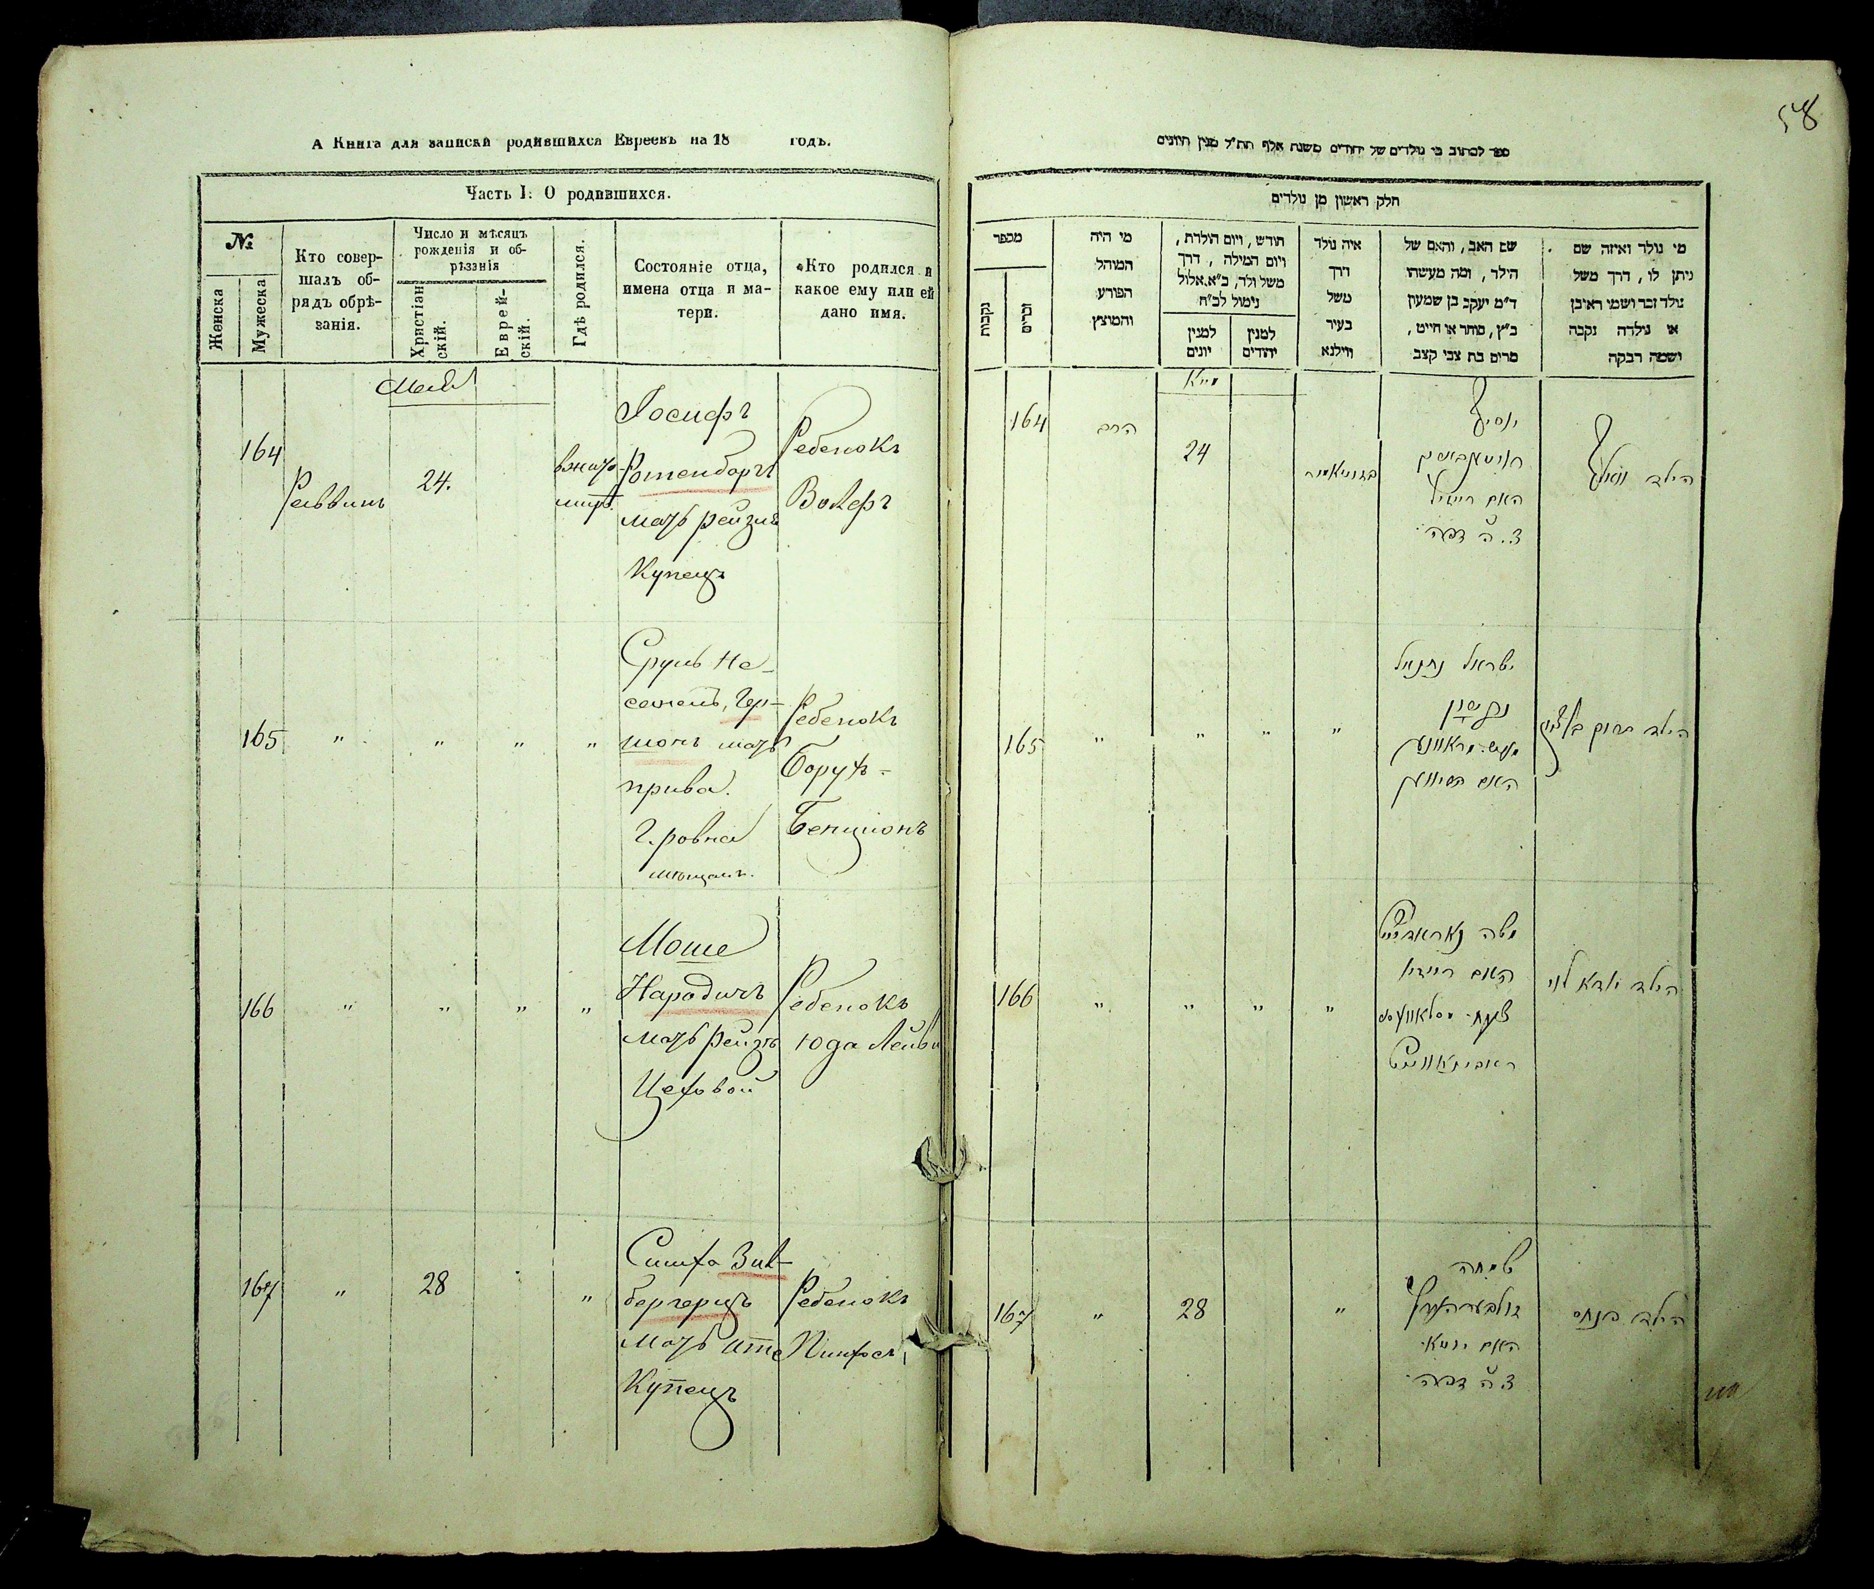 А Книга для записки родившихся Евреевъ на 18 годъ.
Часть I. О родившихся.
№
Женска
Мужеска
Кто совер-
шалъ об-
рядъ обрѣ-
занія.
Число и мѣсяцъ
рожденія и об-
рѣзанія
Христіан
скій.
Еврей-
скій.
Гдѣ родился.
Состояніе отца,
имена отца и ма-
тери.
Кто родился и
какое ему или ей
дано имя.
Май
164
Раввинъ
24.
вжито-
мирѣ
Іосифъ
Ротенбергъ
мать рейзия
Купецъ
Ребенокъ
Волфъ
165
"
"
"
"
Сруль Не-
мать
прива.
г. ровна
мѣщан.
Ребенокъ
Борухъ-
Бенционъ
166
"
"
"
"
Моше
Народичъ
мать рейзя
Цеховой
Ребенокъ
Юда Лейви
167
"
28
"
Симха Зиль
бергерцъ
мать
Купецъ
Ребенокъ
Пинхосъ
58
ספר לכתוב בו נולדים של יהודים משנת אלף תת״ל מנין היונים
חלק ראשון מן נולדים
מספר
נקבות
זכרים
מי היה
המוהל
הפורע
והמוצץ
חודש, ויום הולדת,
ויום המילה, דרך
משל ולד, ב״א.אלול
נימול לב״ח
למנין
יונים
למנין
יהודים
איה נולד
דרך
משל
בעיר
ווילנא
שם האב, והאם של
הילד, ומה מעשהו
ד״מ יעקב בן שמעון
כ״ץ, סוחר או חייט,
מרים בת צבי קצב
מי נולד ואיזה שם
ניתן לו, דרך משל
נולד זכר ושמו ראובן
או נולדה נקבה
ושמה רבקה
מייא
164
הרב
24
יוסיף
האם רייזיל
הילד וואלף
165
"
"
"
"
ישראל נתנאל
האם
הילד ברוך בן ציון
166
"
"
"
"
משה נאראדיטש
האם רייזיא
הילד יודא לוי
167
"
28
"
שמחה
זילבערהארץ
האם
הילד פנחס